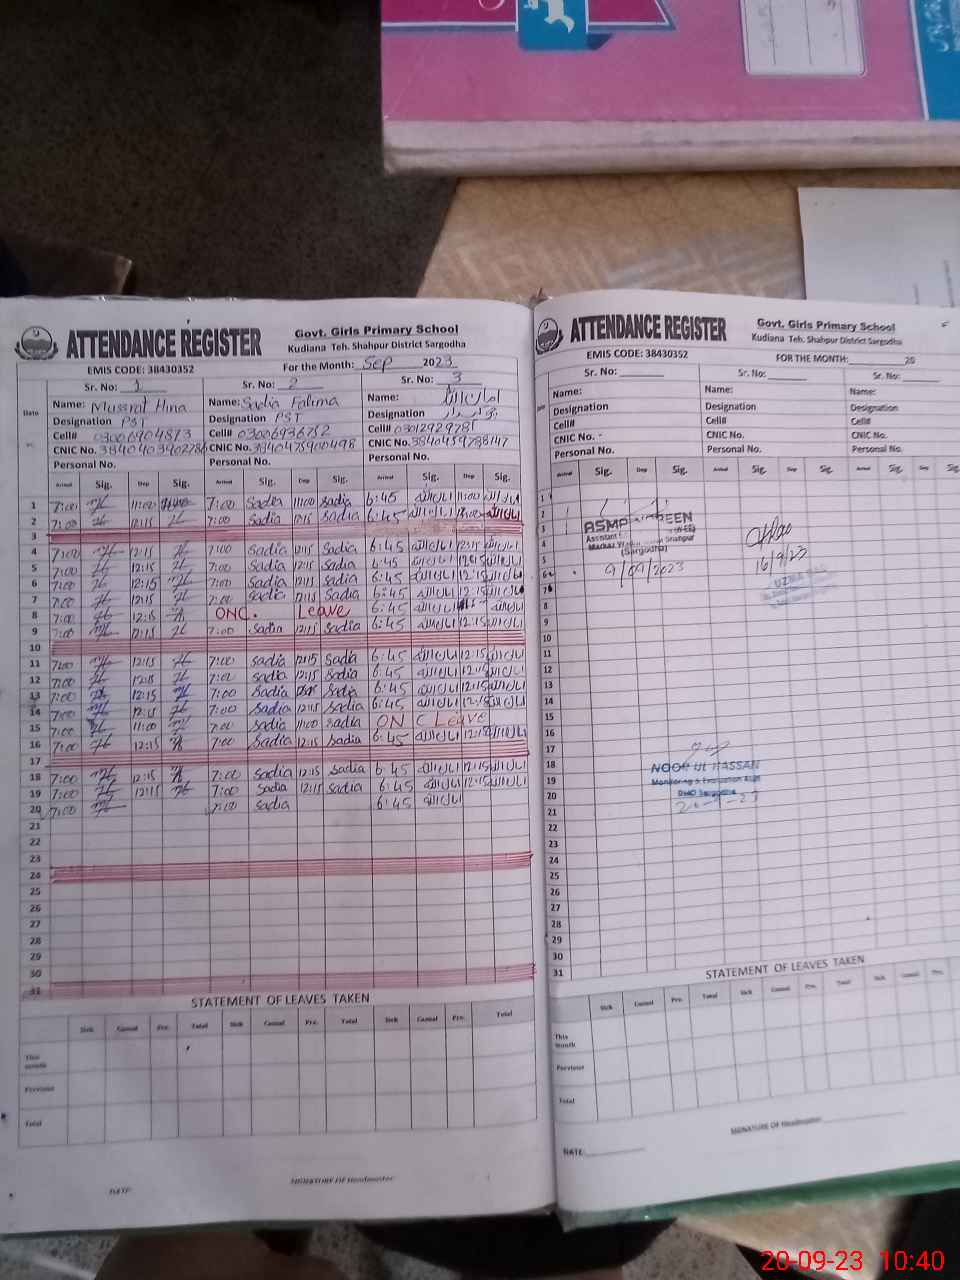 ATTENDANCE REGISTER
Govt. Girls Primary School
Kudiana Teh. Shahpur District Sargodha
EMIS CODE: 38430352
For the Month: Sep 2023
Sr. No: 1 Sr. No: 2 Sr. No: 3
Date
Name: Mussrat Hina Name: Sadia Fatima Name: امان اللہ
Designation PST Designation PST Designation
Cell# 03006904873 Cell# 03006936752 Cell# 03012929781
CNIC No. 3840403402786 CNIC No. 3840475400498 CNIC No. 3840459738147
Personal No. Personal No. Personal No.
Arrival Sig. Dep Sig. Arrival Sig. Dep Sig. Arrival Sig. Dep Sig.
1 7:00 11:00 7:00 Sadia 11:00 Sadia 6:45 امان اللہ 11:00 امان اللہ
2 7:00 12:15 7:00 Sadia 12:15 Sadia 6:45 امان اللہ امان اللہ
3
4 7:00 12:15 7:00 Sadia 12:15 Sadia 6:45 امان اللہ 12:15 امان اللہ
5 7:00 12:15 7:00 Sadia 12:15 Sadia 6:45 امان اللہ 12:15 امان اللہ
6 7:00 12:15 7:00 Sadia 12:15 Sadia 6:45 امان اللہ 12:15 امان اللہ
7 7:00 12:15 7:00 Sadia 12:15 Sadia 6:45 امان اللہ 12:15 امان اللہ
8 7:00 12:15 ONC. Leave 6:45 امان اللہ امان اللہ
9 7:00 12:15 7:00 Sadia 12:15 Sadia 6:45 امان اللہ 12:15 امان اللہ
10
11 7:00 12:15 7:00 Sadia 12:15 Sadia 6:45 امان اللہ 12:15 امان اللہ
12 7:00 12:15 7:00 Sadia 12:15 Sadia 6:45 امان اللہ 12:15 امان اللہ
13 7:00 12:15 7:00 Sadia Sadia 6:45 امان اللہ 12:15 امان اللہ
14 7:00 12:15 7:00 Sadia 12:15 Sadia 6:45 امان اللہ 12:15 امان اللہ
15 7:00 11:00 7:00 Sadia 11:00 Sadia ON C Leave
16 7:00 12:15 7:00 Sadia 12:15 Sadia 6:45 امان اللہ 12:15 امان اللہ
17
18 7:00 12:15 7:00 Sadia 12:15 Sadia 6:45 امان اللہ 12:15 امان اللہ
19 7:00 12:15 7:00 Sadia 12:15 Sadia 6:45 امان اللہ 12:15 امان اللہ
20 7:00 7:00 Sadia 6:45 امان اللہ
21
22
23
24
25
26
27
28
29
30
31
STATEMENT OF LEAVES TAKEN
Sick Casual Pre. Total Sick Casual Pre. Total Sick Casual Pre. Total
This month
Previous
Total
DATE
SIGNATURE OF Headmaster
ATTENDANCE REGISTER
Govt. Girls Primary School
Kudiana Teh. Shahpur District Sargodha
EMIS CODE: 38430352
FOR THE MONTH: 20
Sr. No: Sr. No: Sr. No:
Name: Name: Name:
Designation Designation Designation
Cell# Cell# Cell#
CNIC No. - CNIC No. CNIC No.
Personal No. Personal No. Personal No.
Arrival Sig. Dep Sig. Arrival Sig. Dep Sig. Arrival Sig. Dep Sig.
1
2
3
4
5
6
7
8
9
10
11
12
13
14
15
16
17
18
19
20
21
22
23
24
25
26
27
28
29
30
31
Assistant
Shahpur
(Sargodha)
9/09/2023
16/9/23
NOOR UL HASSAN
Monitoring & Evaluation Asstt
DMO Sargodha
STATEMENT OF LEAVES TAKEN
Sick Casual Pre. Total Sick Casual Pre. Total Sick Casual Pre.
This month
Previous
Total
SIGNATURE OF Headmaster
DATE
20-09-23 10:40